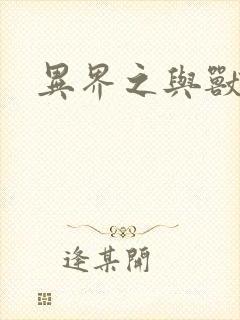 異界之與獸
逢某開